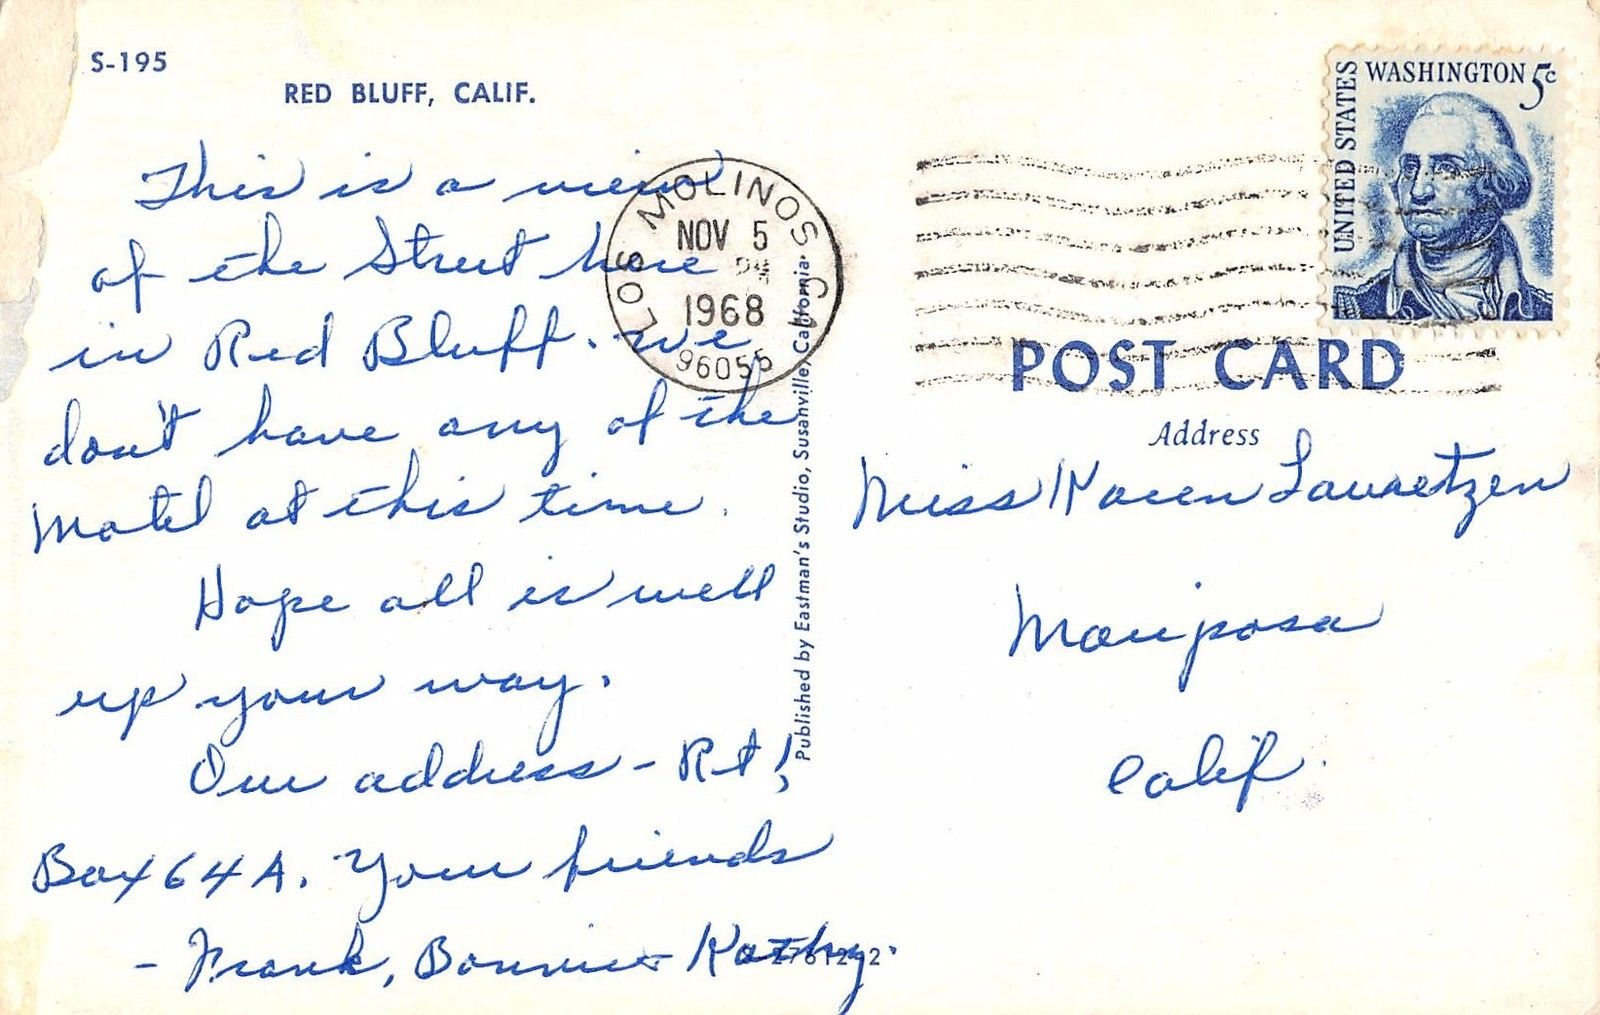 S-195
RED BLUFF, CALIF.
This is a view
of the Street here
in Red Bluff. we
don't have any of the
Motel at this time.
Hope all is well
up your way.
Our address - Rt 1,
Box 64 A. Your friends
- Frank, Bonnie + Kathy.
LOS MOLINOS
NOV 5
1968
96055
Published by Eastman's Studio, Susanville, California
UNITED STATES
WASHINGTON 5c
POST CARD
Address
Miss Karen Lauretzen
Mariposa
Calif.